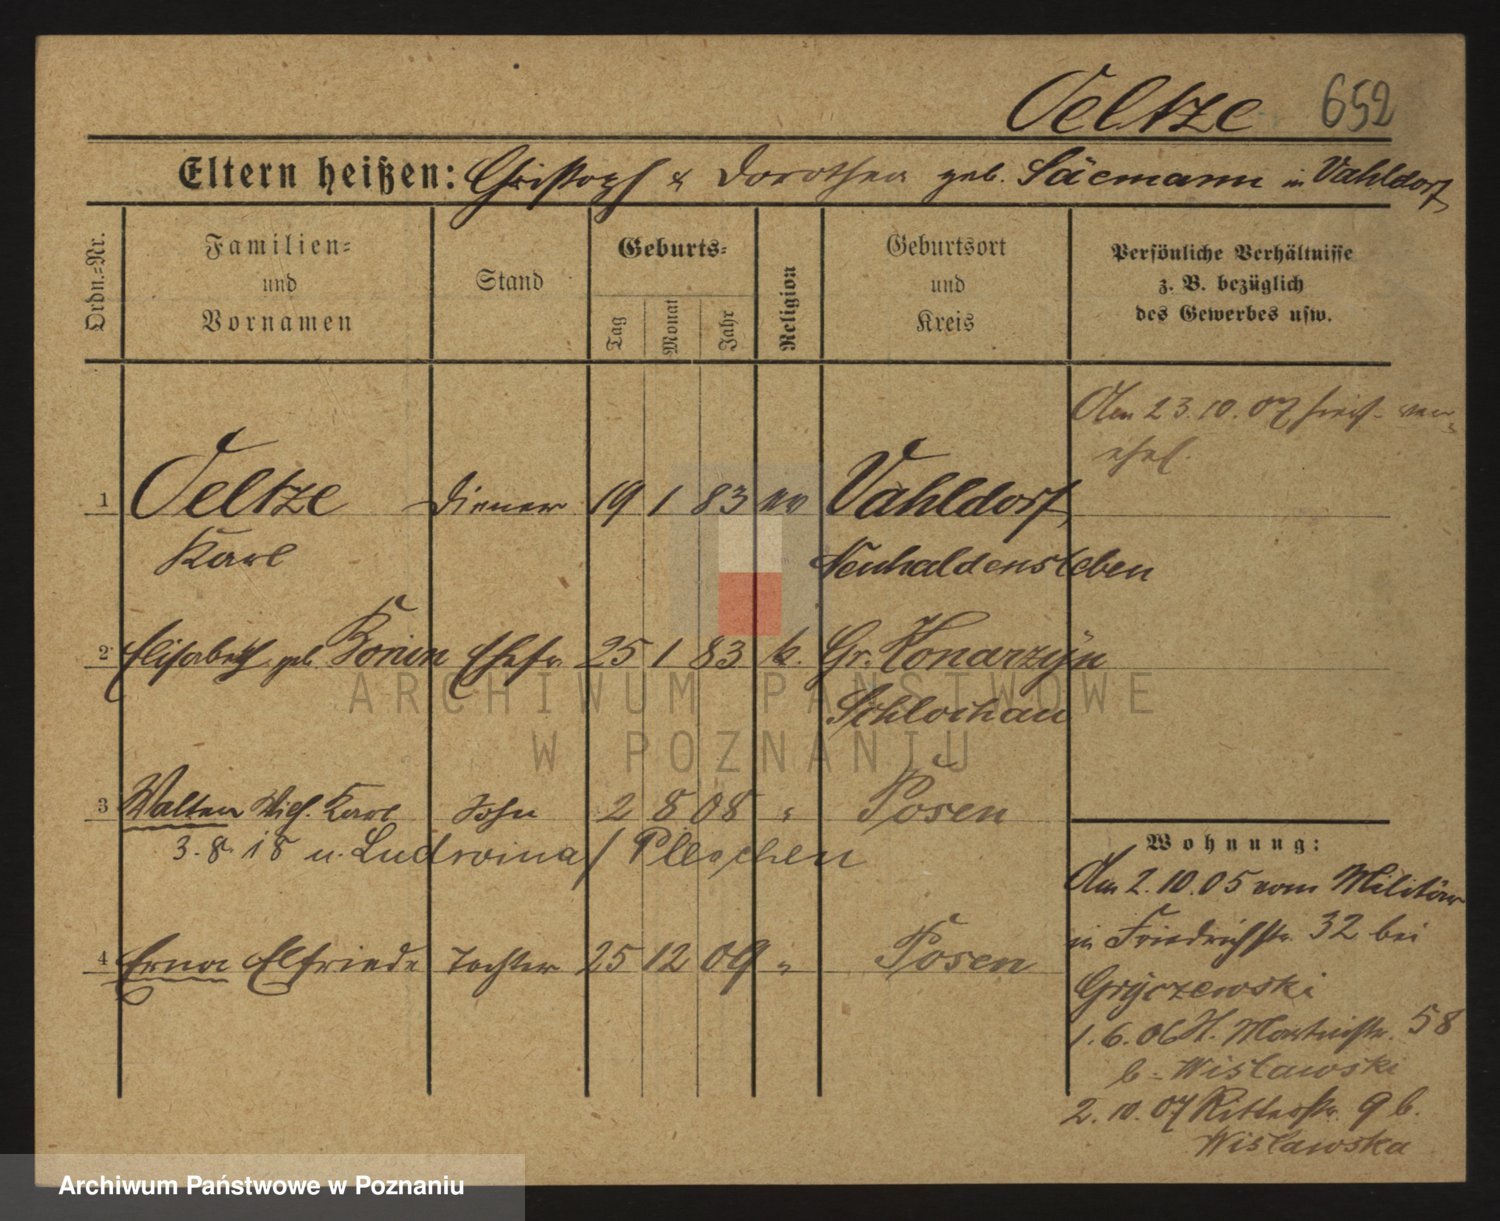 Oeltze 652
Eltern heißen: Christoph & Dorothea geb. Säemann in Vahldorf
Ordn.=Nr.
Familien=
und
Vornamen
Stand
Geburts=
Tag
Monat
Jahr
Religion
Geburtsort
und
Kreis
Persönliche Verhältnisse
z. B. bezüglich
des Gewerbes usw.
Am 23.10.07 hier ver=
ehel.
1 Oeltze Diener 19 1 83 ev Vahldorf
Karl Neuhaldensleben
2 Elisabeth geb. Konin Ehefr. 25 1 83 k. Gr. Konarzyn
Schlochau
3 Walter Wilh. Karl Sohn 2 8 08 " Posen
3.8.18 u. Ludwina / Pleschen
4 Erna Elfriede Tochter 25 12 09 " Posen
Wohnung:
Am 2.10.05 vom Militär
in Friedrichstr. 32 bei
Gryczewski
1.6.06 St. Martinstr. 58
b. Wislawski
2.10.07 Ritterstr. 9 b.
Wislawska
ARCHIWUM PAŃSTWOWE
W POZNANIU
Archiwum Państwowe w Poznaniu